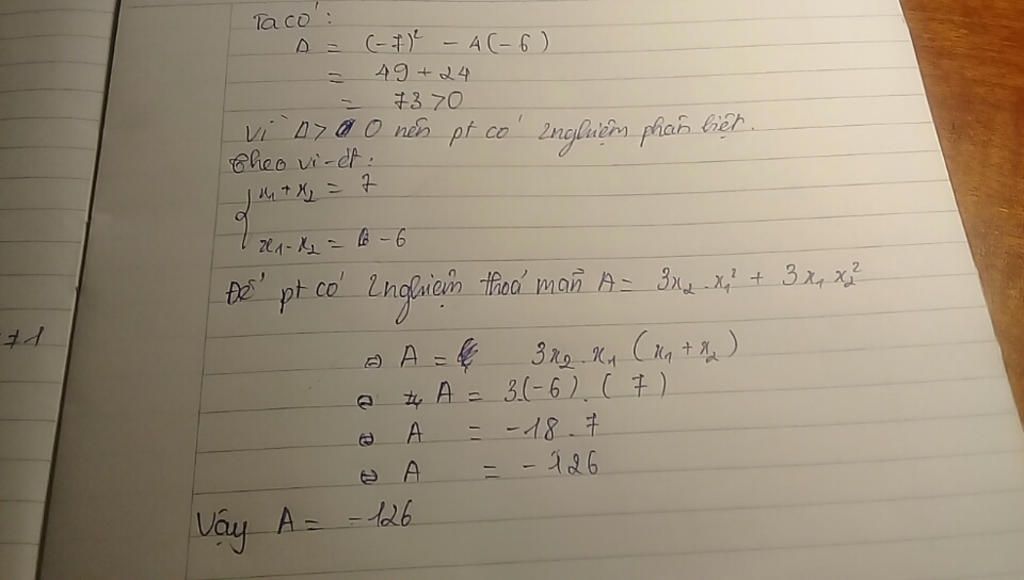 Ta có:
Δ = (-7)² - 4(-6)
= 49 + 24
= 73 > 0
Vì Δ > 0 nên pt có 2 nghiệm phân biệt.
Theo vi-ét:
{ x₁ + x₂ = 7
x₁ . x₂ = -6
Để pt có 2 nghiệm thoả mãn A = 3x₂ . x₁² + 3x₁ x₂²
⇔ A = 3x₂ . x₁ (x₁ + x₂)
≠1
⇔ A = 3.(-6) . (7)
⇔ A = -18 . 7
⇔ A = -126
Vậy A = -126